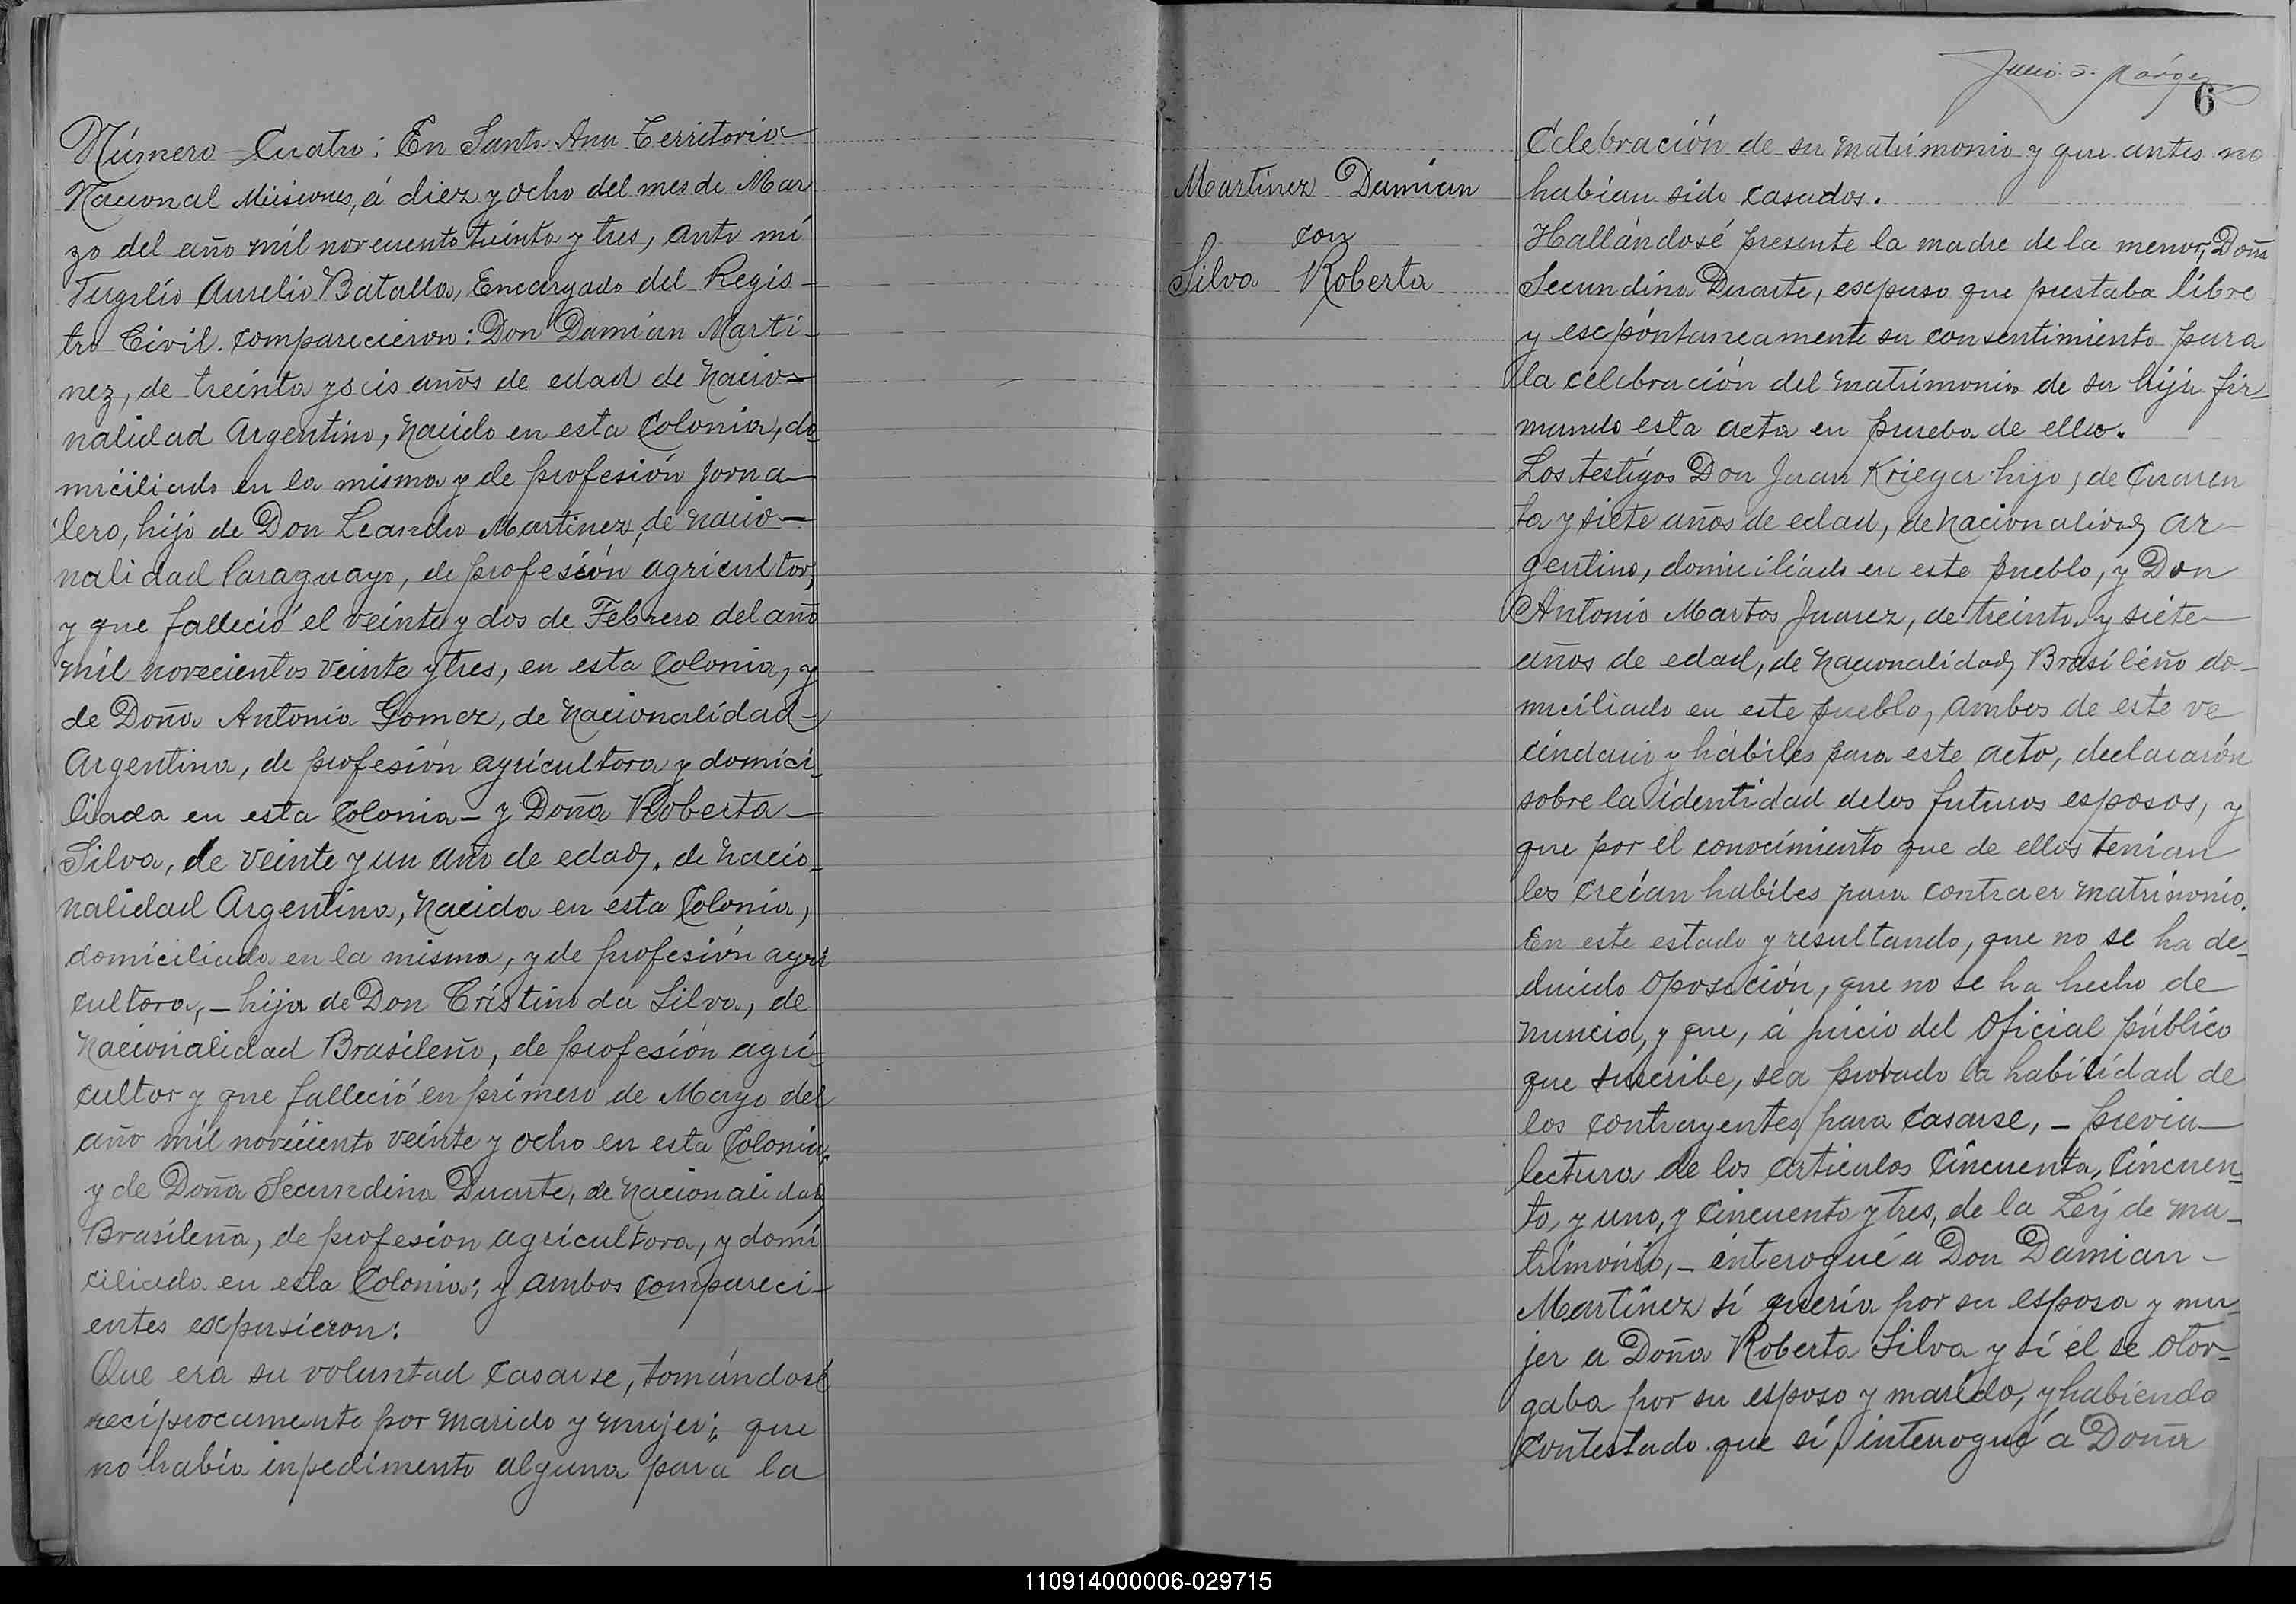 Número Cuatro: En Santa Ana Territorio
Nacional Misiones, á diez y ocho del mes de Mar
zo del año mil novecuento treinta y tres, ante mi
Aurelio Batalla, Encargado del Regis-
tro Civil. comparecieron: Don Damían Marti-
nez, de treinta y seis años de edad de Nacio-
nalidad Argentino, Nacido en esta Colonia, do
miciliado en la misma y de profesión Jorna-
lero, hijo de Don Leandro Martinez, de nacio-
nalidad Paraguayo, de profesión agricultor,
y que falleció el veinte y dos de Febrero del año
mil novecientos veinte y tres, en esta Colonia, y
de Doña Antonia Gomez, de Nacionalidad-
Argentina, de profesión agricultora y domici-
liada en esta Colonia - y Doña Roberta-
Silva, de veinte y un año de edad, de Nacio-
nalidad Argentina, Nacida en esta Colonia,
domiciliada en la misma, y de profesión agri
cultora, - hija de Don Cristino da Silva, de
Nacionalidad Brasileño, de profesión agrí-
cultor y que falleció en primero de Mayo del
año mil noveciento veinte y ocho en esta Colonia,
y de Doña Secundina Duarte, de Nacionalidad
Brasileña, de profesión agricultora, y domi
ciliada en esta Colonia; y ambos compareci-
entes escpusieron:
Que era su voluntad Casarse, tomándosé
recíprocamente por marido y mujer; que
no había inpedimento alguna para la
Martinez Damian
con
Silva Roberta
Julio
6
Celebración de su matrimonio y que antes no
habían sido casados.
Hallándosé presente la madre de la menor, Doña
Secundina Duarte, escpuso que prestaba libre
y escpóntaneamente su consentimiento para
la célebración del matrimonio de su hija fir-
mando esta acta en prueba de ello.
Los testígos Don Juan Krieger hijo, de Cuaren
ta y siete años de edad, de nacionalidad Ar-
gentino, domiciliado en este pueblo, y Don
Antonio Martos Juarez, de treinta y siete
años de edad, de Nacionalidad Brasileño do-
miciliado en este pueblo, ambos de este ve
cindario y hábiles para este acto, declararón
sobre la identidad de los futuros esposos, y
que por el conocimiento que de ellos tenían
los creían habíles para contraer matrimonio.
En este estado y resultando, que no se ha de-
ducido Oposición, que no se ha hecho de
nuncia, y que, á juicio del Oficial público
que suscribe, sea provado la habilidad de
los contrayentes para casarse, - previa
lectura de los articulos Cincuenta, Cincuen-
ta, y uno, y Cincuenta y tres, de la Léy de ma-
trimónio, - interogué a Don Damian -
Martinez sí quería por su esposa y mu-
jer a Doña Roberta Silva y sí él se otor-
gaba por su esposo y marido, y habiendo
Contestado que sí, interrogué á Doña
110914000006-029715